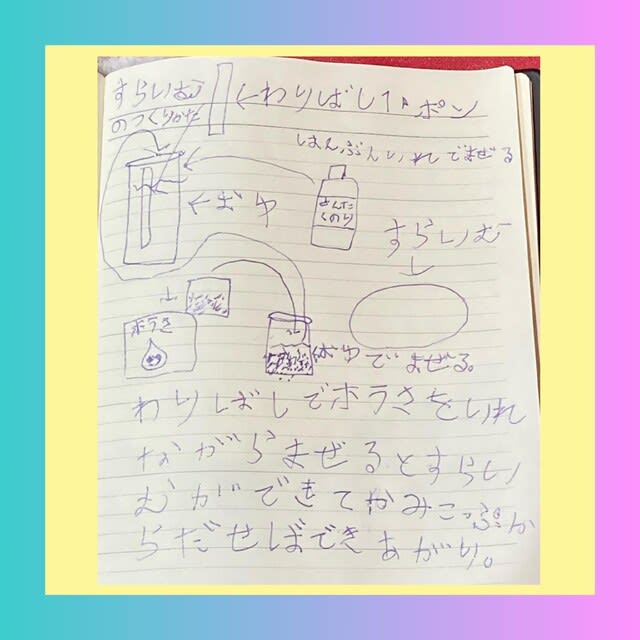 すらいむ
のつくりかた
←わりばし1ポン
はんぶんいれてまぜる
せんたくのり
すらいむ
ホうさ
でまぜる。
わりばしでホうさをいれ
ながらまぜるとすらい
むができてかみこっぷか
らだせばできあがり。